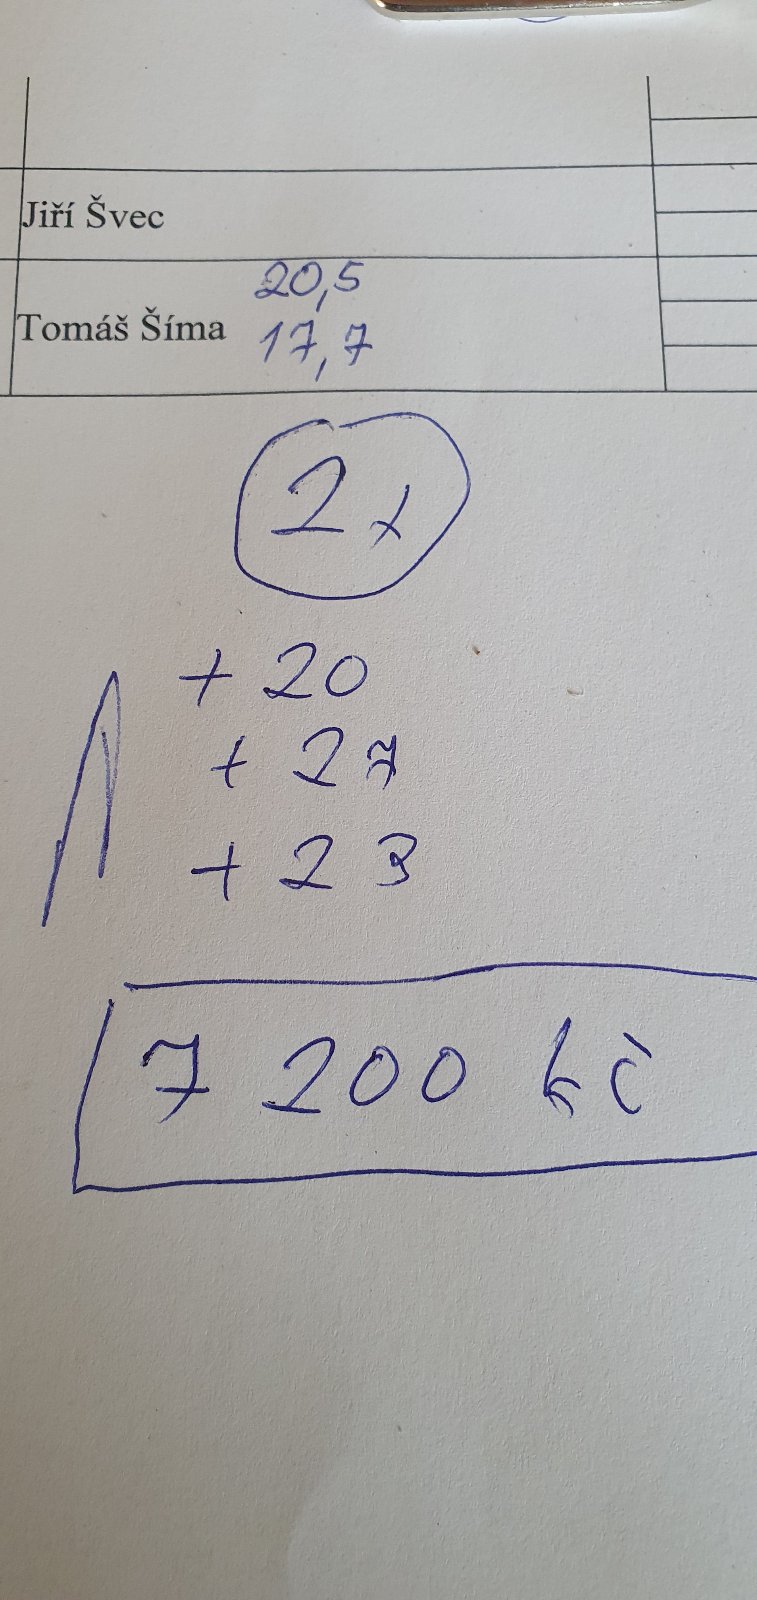 Jiří Švec
20,5
Tomáš Šíma 17,7
2x
+ 20
+ 27
+ 23
7 200 Kč